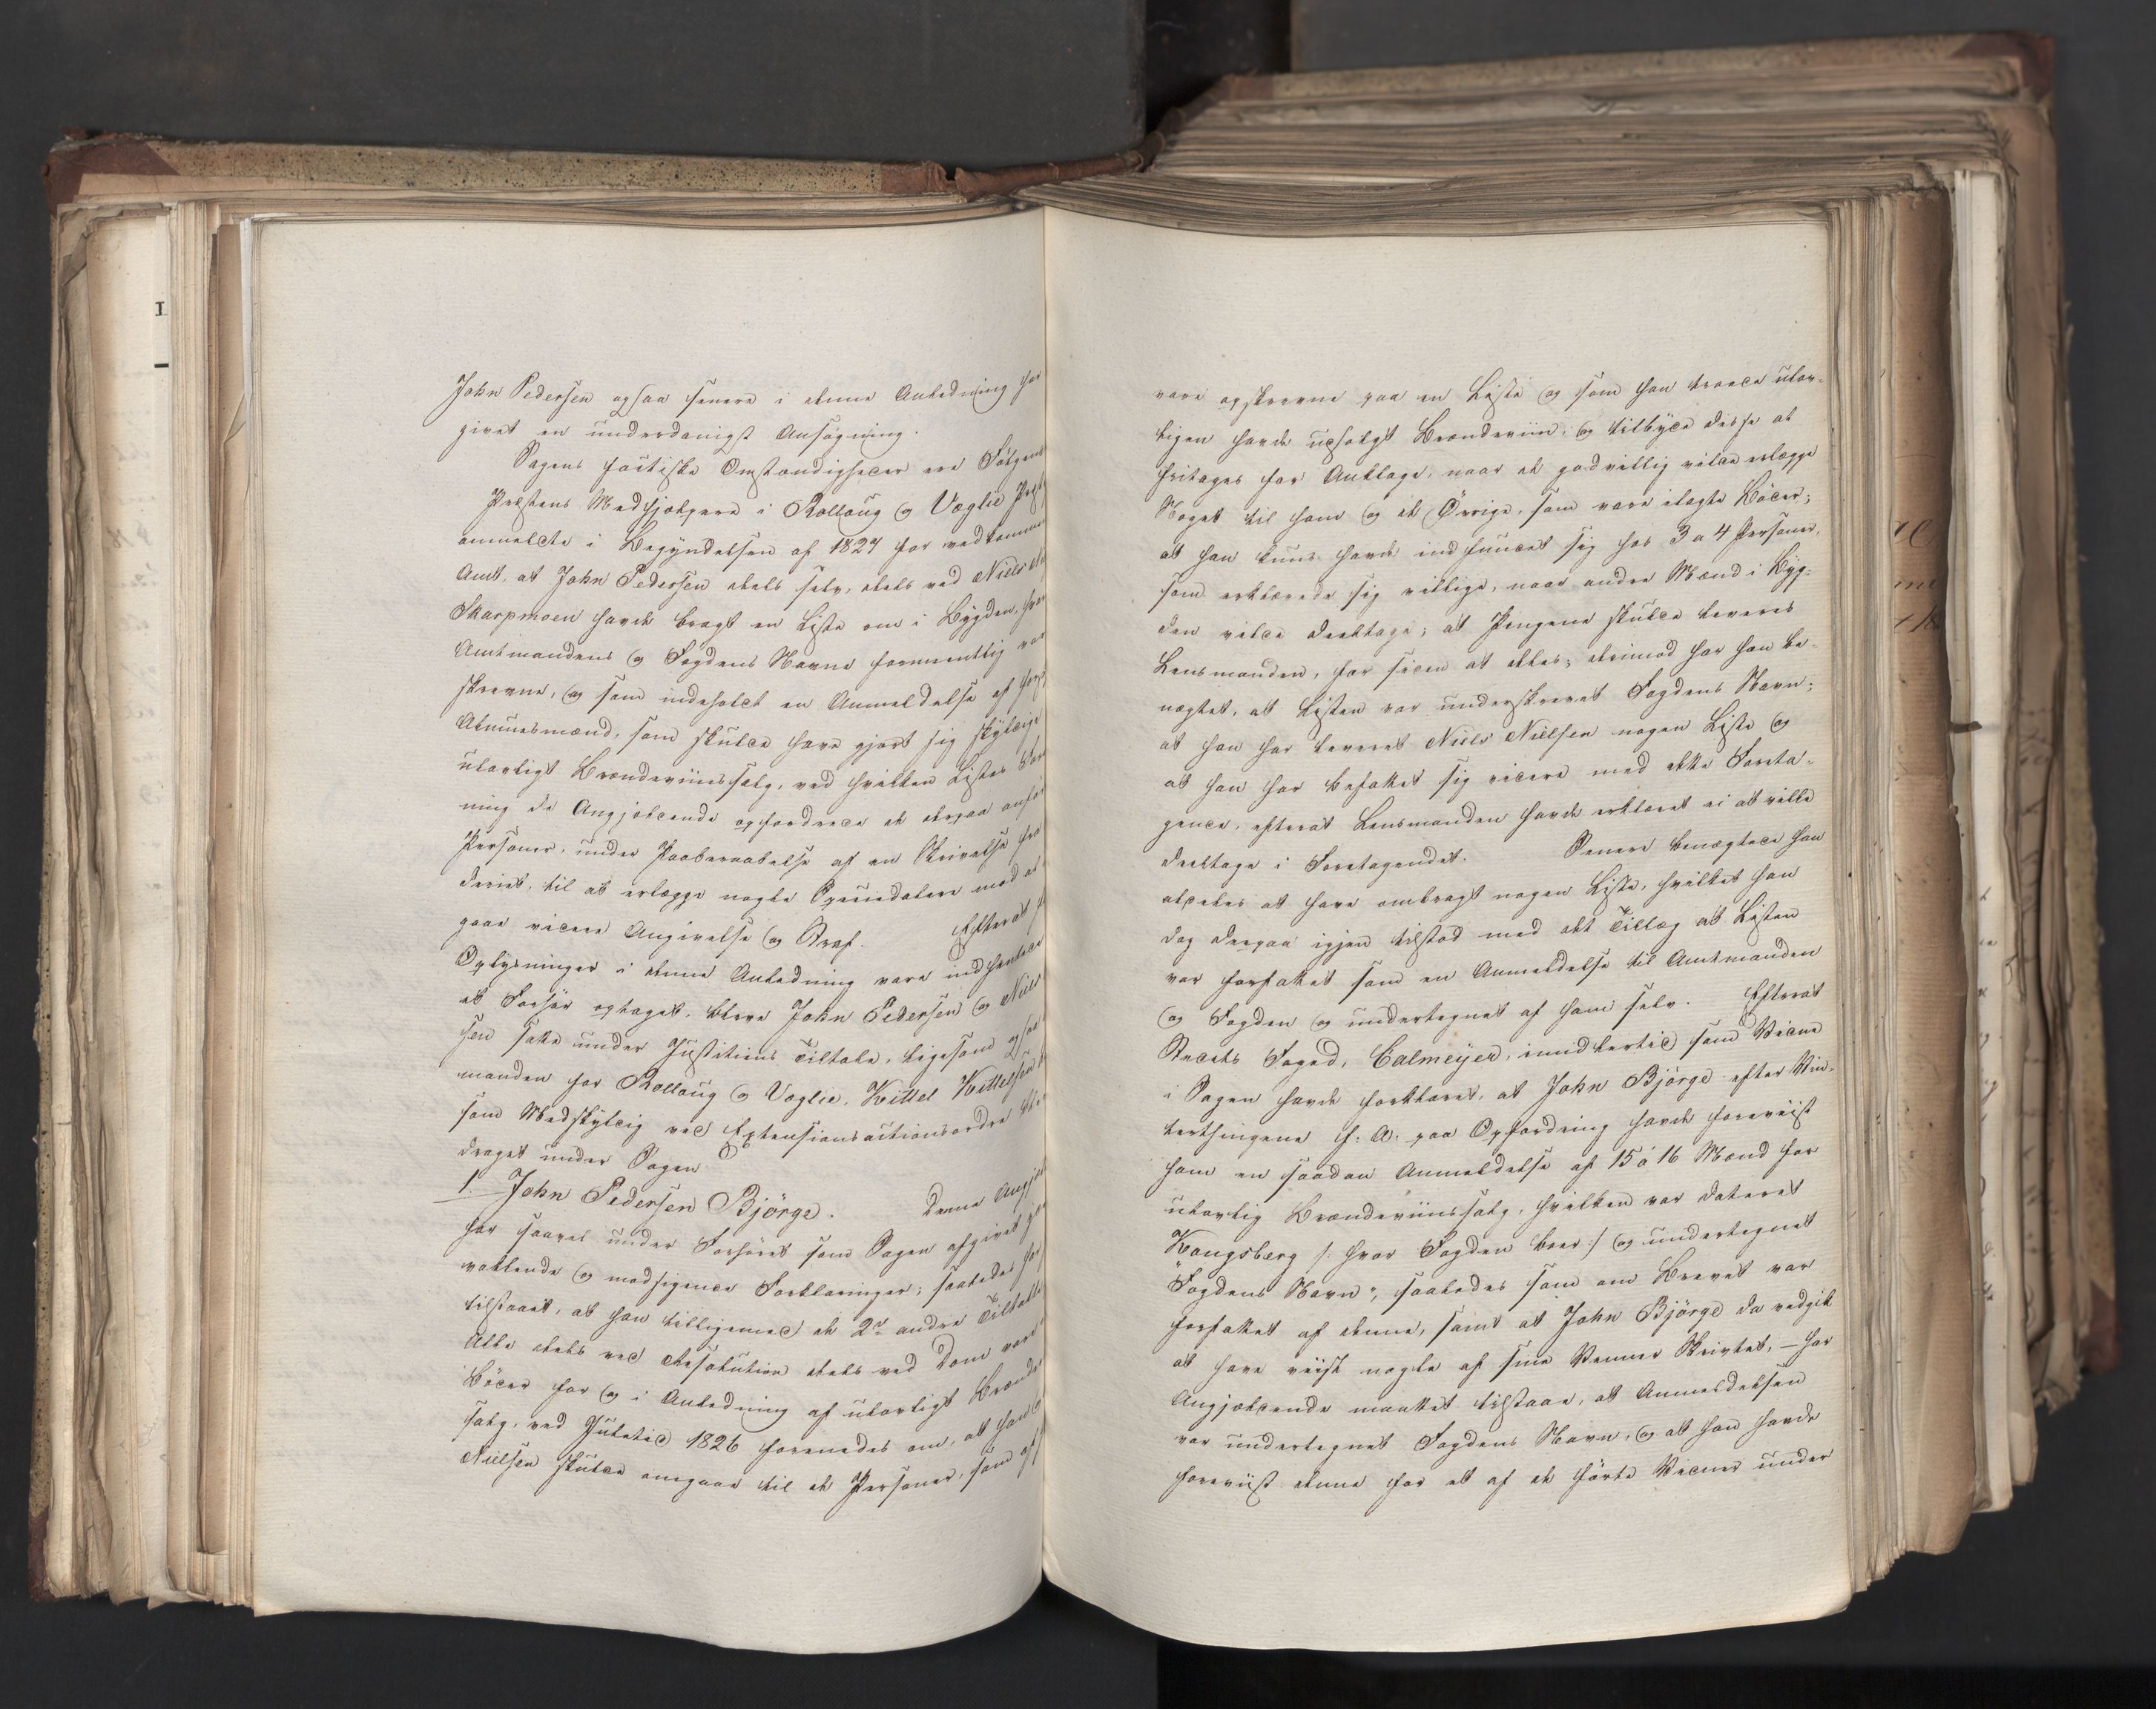 John Pedersen ogsaa senere i denne Anledning har
givet en underdanigst Ansøgning.
Sagens factiske Omstændigheder ere Følgende
Præstens Medhjælpere i Rollaug og Væglie
anmeldte i Begyndelsen af 1827 for vedkommende
Amt, at John Pedersen deels selv, deels ved Niels
Skarpmoen havde bragt en Liste om i Bygden, hvor
Amtmandens og Fogdens Navne formeentlig var
skrevne, og som indeholdt en Anmeldelse af
Almuesmænd, som skulde have gjort sig skyldige
ulovligt Brændeviinssalg, ved hvilken Listes
ning de Angjældende opfordrede de derpaa
Personer, under Paaberaabelse af en Skrivelse fra
deriet, til at erlægge nogle Speciedalere mod at
gaae videre Angivelse og Straf. Efterat
Oplysninger i denne Anledning vare indhentede
et Forhør optaget, bleve John Pedersen og Niels
sen satte under Justitiens Tiltale, ligesom ogsaa
manden for Rollaug og Væglie, Kittel Kittelsen
som Medskyldig ved Extensionsactionsordre
draget under Sagen
1. John Pedersen Bjørge. Denne
har saavel under Forhøret som Sagen afgivet
vaklende og modsigende Forklaringer; saaledes har
tilstaaet, at han tilligemed de 2de andre Tiltalte
Alle deels ved Resolution deels ved Dom vare
Bøder for og i Anledning af ulovligt
salg, ved Juletid 1826 forenedes om, at han og
Nielsen skulde omgaae til de Personer, som
vare opskrevne paa en Liste og som han troede ulov-
ligen havde udsolgt Brændeviin, og tilbyde disse at
fritages for Anklage, naar de godvillig vilde erlægge
Noget til ham og de Øvrige, som vare ilagte Bøder;
at han kuns havde indfundet sig hos 3 a 4 Personer,
som erklærede sig villige, naar andre Mænd i Byg-
den vilde deeltage; at Pengene skulde leveres
Lensmanden, for siden at deles; derimod har han be-
nægtet, at Listen var underskrevet Fogdens Navn;
at han har leveret Niels Nielsen nogen Liste og
at han har befattet sig videre med dette Foreta-
gende, efterat Lensmanden havde erklæret ei at ville
deeltage i Foretagendet. Senere benægtede han
aldeles at have ombragt nogen Liste, hvilket han
dog derpaa igjen tilstod med det Tillæg at Listen
var forfattet som en Anmeldelse til Amtmanden
og Fogden og undertegnet af ham selv. Efterat
Stedets Foged, Calmeyer, imidlertid som Vidne
i Sagen havde forklaret, at John Bjørge efter Vin-
terthingene f: A: paa Opfordring havde foreviist
ham en saadan Anmeldelse af 15 a 16 Mænd for
ulovlig Brændeviinssalg, hvilken var dateret
"Kongsberg /: hvor Fogden boer :/ og undertegnet
"Fogdens Navn", saaledes som om Brevet var
forfattet af denne, samt at John Bjørge da vedgik
at have viist nogle af sine Venner Skrivtet, – har
Angjældende maattet tilstaae, at Anmeldelsen
var undertegnet Fogdens Navn, og at han havde
foreviist denne for et af de førte Vidner under